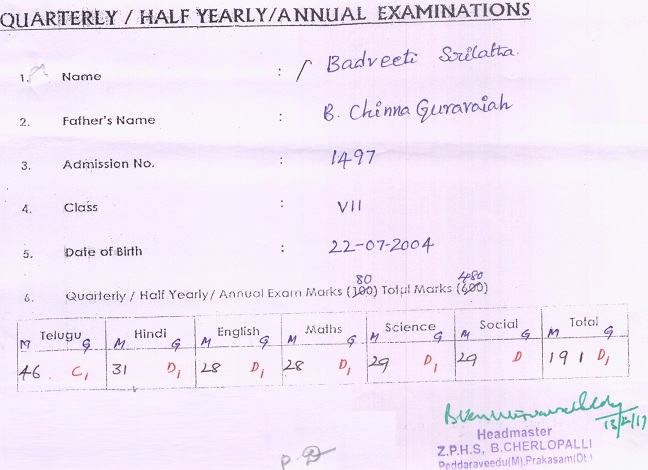 QUARTERLY / HALF YEARLY/ANNUAL EXAMINATIONS
1. Name : Badveeti Srilatha
2. Father's Name : B. Chinna Guravaiah
3. Admission No. : 1497
4. Class : VII
5. Date of Birth : 22-07-2004
80 480
6. Quarterly / Half Yearly/ Annual Exam Marks (100) Total Marks (600)
Telugu Hindi English Maths Science Social Total
M G M G M G M G M G M G M G
46 C1 31 D1 28 D1 28 D1 29 D1 29 D 191 D1
Headmaster
Z.P.H.S, B.CHERLOPALLI
Peddaraveedu(M),Prakasam(Dt.)